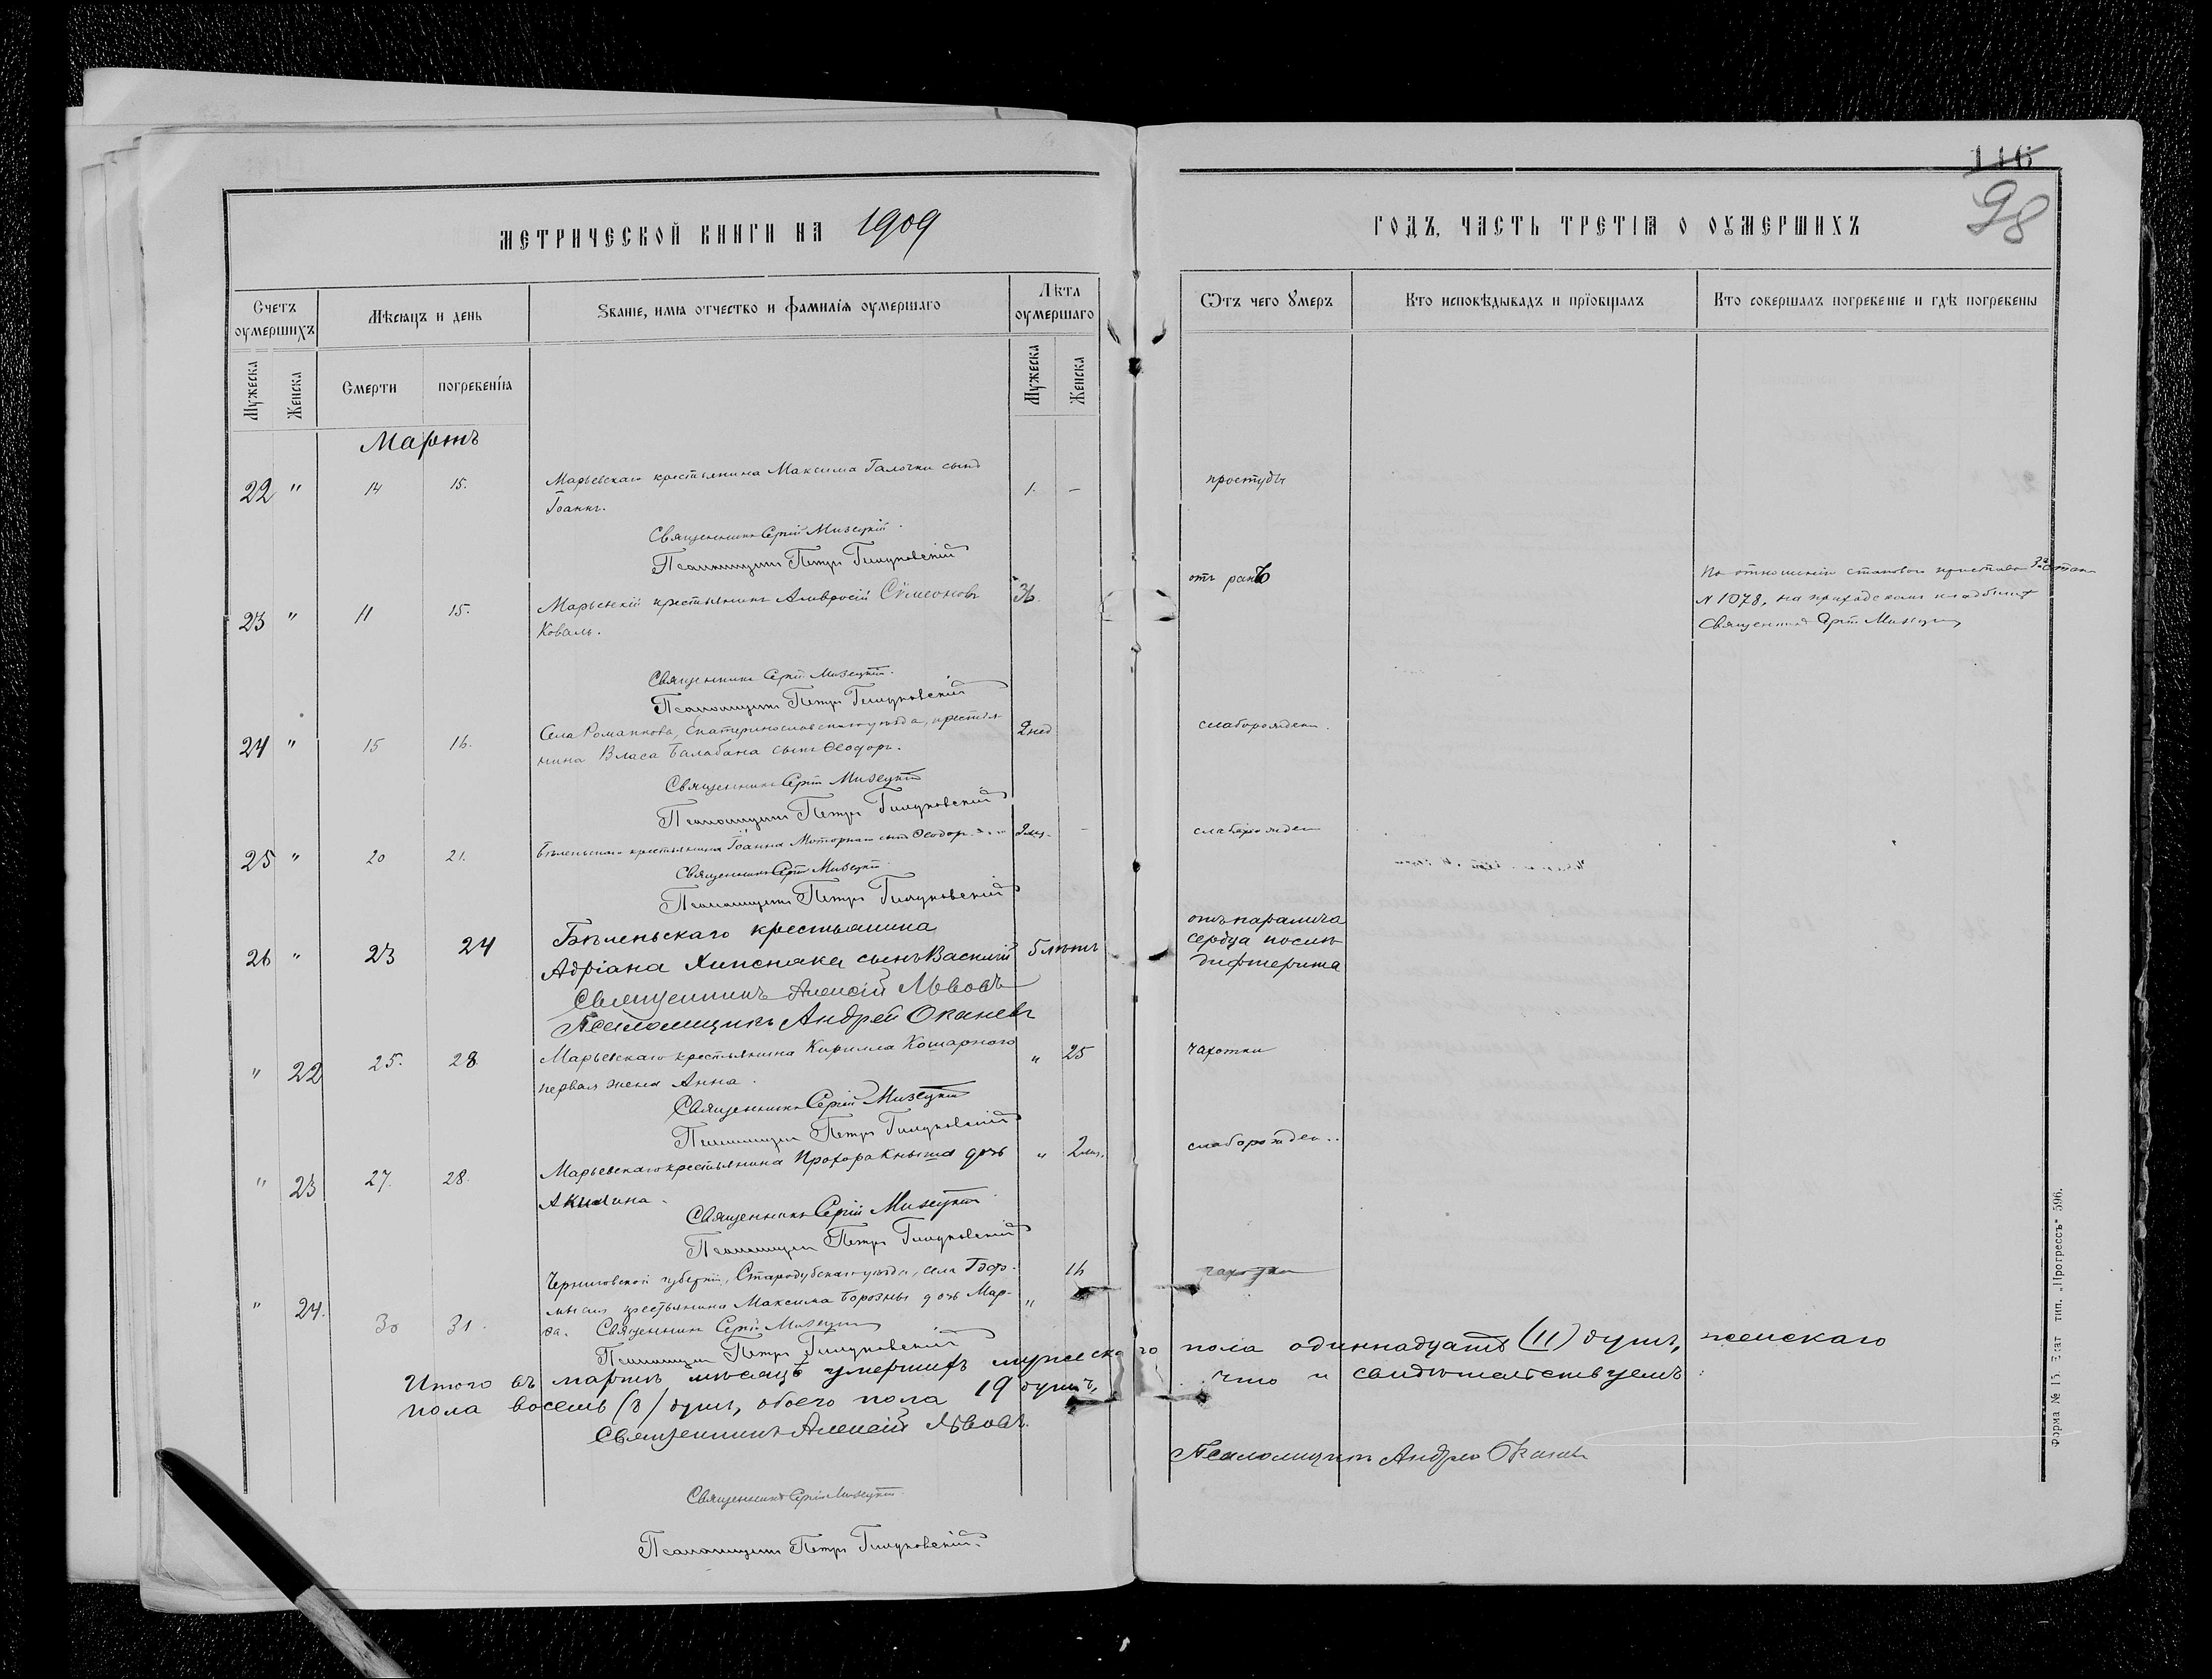 116
98
МЕТРИЧЕСКОЙ КНИГИ НА 1909
ГОДЪ, ЧАСТЬ ТРЕТІЯ О ОУМЕРШИХЪ
Счетъ оумершихъ
Мѣсяцъ и день
Званіе, имя отчество и фамилія оумершаго
Лѣта оумершаго
Ѿтъ чего умеръ
Кто исповѣдывалъ и пріобщалъ
Кто совершалъ погребеніе и гдѣ погребены
Мужеска
Женска
Смерти
погребенія
Мужеска
Женска
Мартъ
22 " 14 15. Марьевскаго крестьянина Максима Галочки сынъ 1. – простуды
Іоаннъ.
Священникъ Сергій Мизецкій.
Псаломщикъ Петръ
23 " 11 15. Марьевскій крестьянинъ Амвросій Сѵмеоновъ 36. отъ ранъ
Коваль.
По отношенію станового пристава 3го стана
№ 1078, на приходскомъ кладбищѣ
Священникъ Сергій Мизецкій
Священникъ Сергій Мизецкій.
Псаломщикъ Петръ
24 " 15 16. Села Романкова, Екатеринославскаго уѣзда, крестья- 2 нед слаборожден.
нина Власа Балабана сынъ Ѳеодоръ.
Священникъ Сергій Мизецкій
Псаломщикъ Петръ
25 " 20 21. Бѣленьскаго крестьянина Іоанна Моторнаго сынъ Ѳеодоръ 2 мѣс. – слаборожден
Священникъ Сергій Мизецкій
Псаломщикъ Петръ
26 " 23 24 Бѣленьскаго крестьянина
Адріана сынъ Василій 5 лѣтъ
отъ паралича
сердца послѣ
дифтерита
Священникъ Алексій Львовъ
Псаломщикъ Андрей Оканевъ
" 22 25. 28 Марьевскаго крестьянина Кирилла Кошарного " 25 чахотки
первая жена Анна.
Священникъ Сергій Мизецкій
Псаломщикъ Петръ
" 23 27. 28. Марьевскаго крестьянина Прохора Кныша дочь " 2 мѣс. слаборожден..
Акилина.
Священникъ Сергій Мизецкій
Псаломщикъ Петръ
" 24. 30 31. Черниговской губерніи, Стародубскаго уѣзда, села 16 чахотки
крестьянина Максима Борозны дочь Мар- "
ѳа. Священникъ Сергій Мизецкій
Псаломщикъ Петръ
Итого въ мартѣ мѣсяцѣ умершихъ мужескаго пола одиннадцать (11) душъ, женскаго
пола восемь (8) душъ, обоего пола 19 душъ, что и свидѣтельствуемъ:
Священникъ Алексій Львовъ.
Псаломщикъ Андрей Оканевъ
Священникъ Сергій Мизецкій
Псаломщикъ Петръ
Форма № 15. Екат. тип. „Прогрессъ" 596.